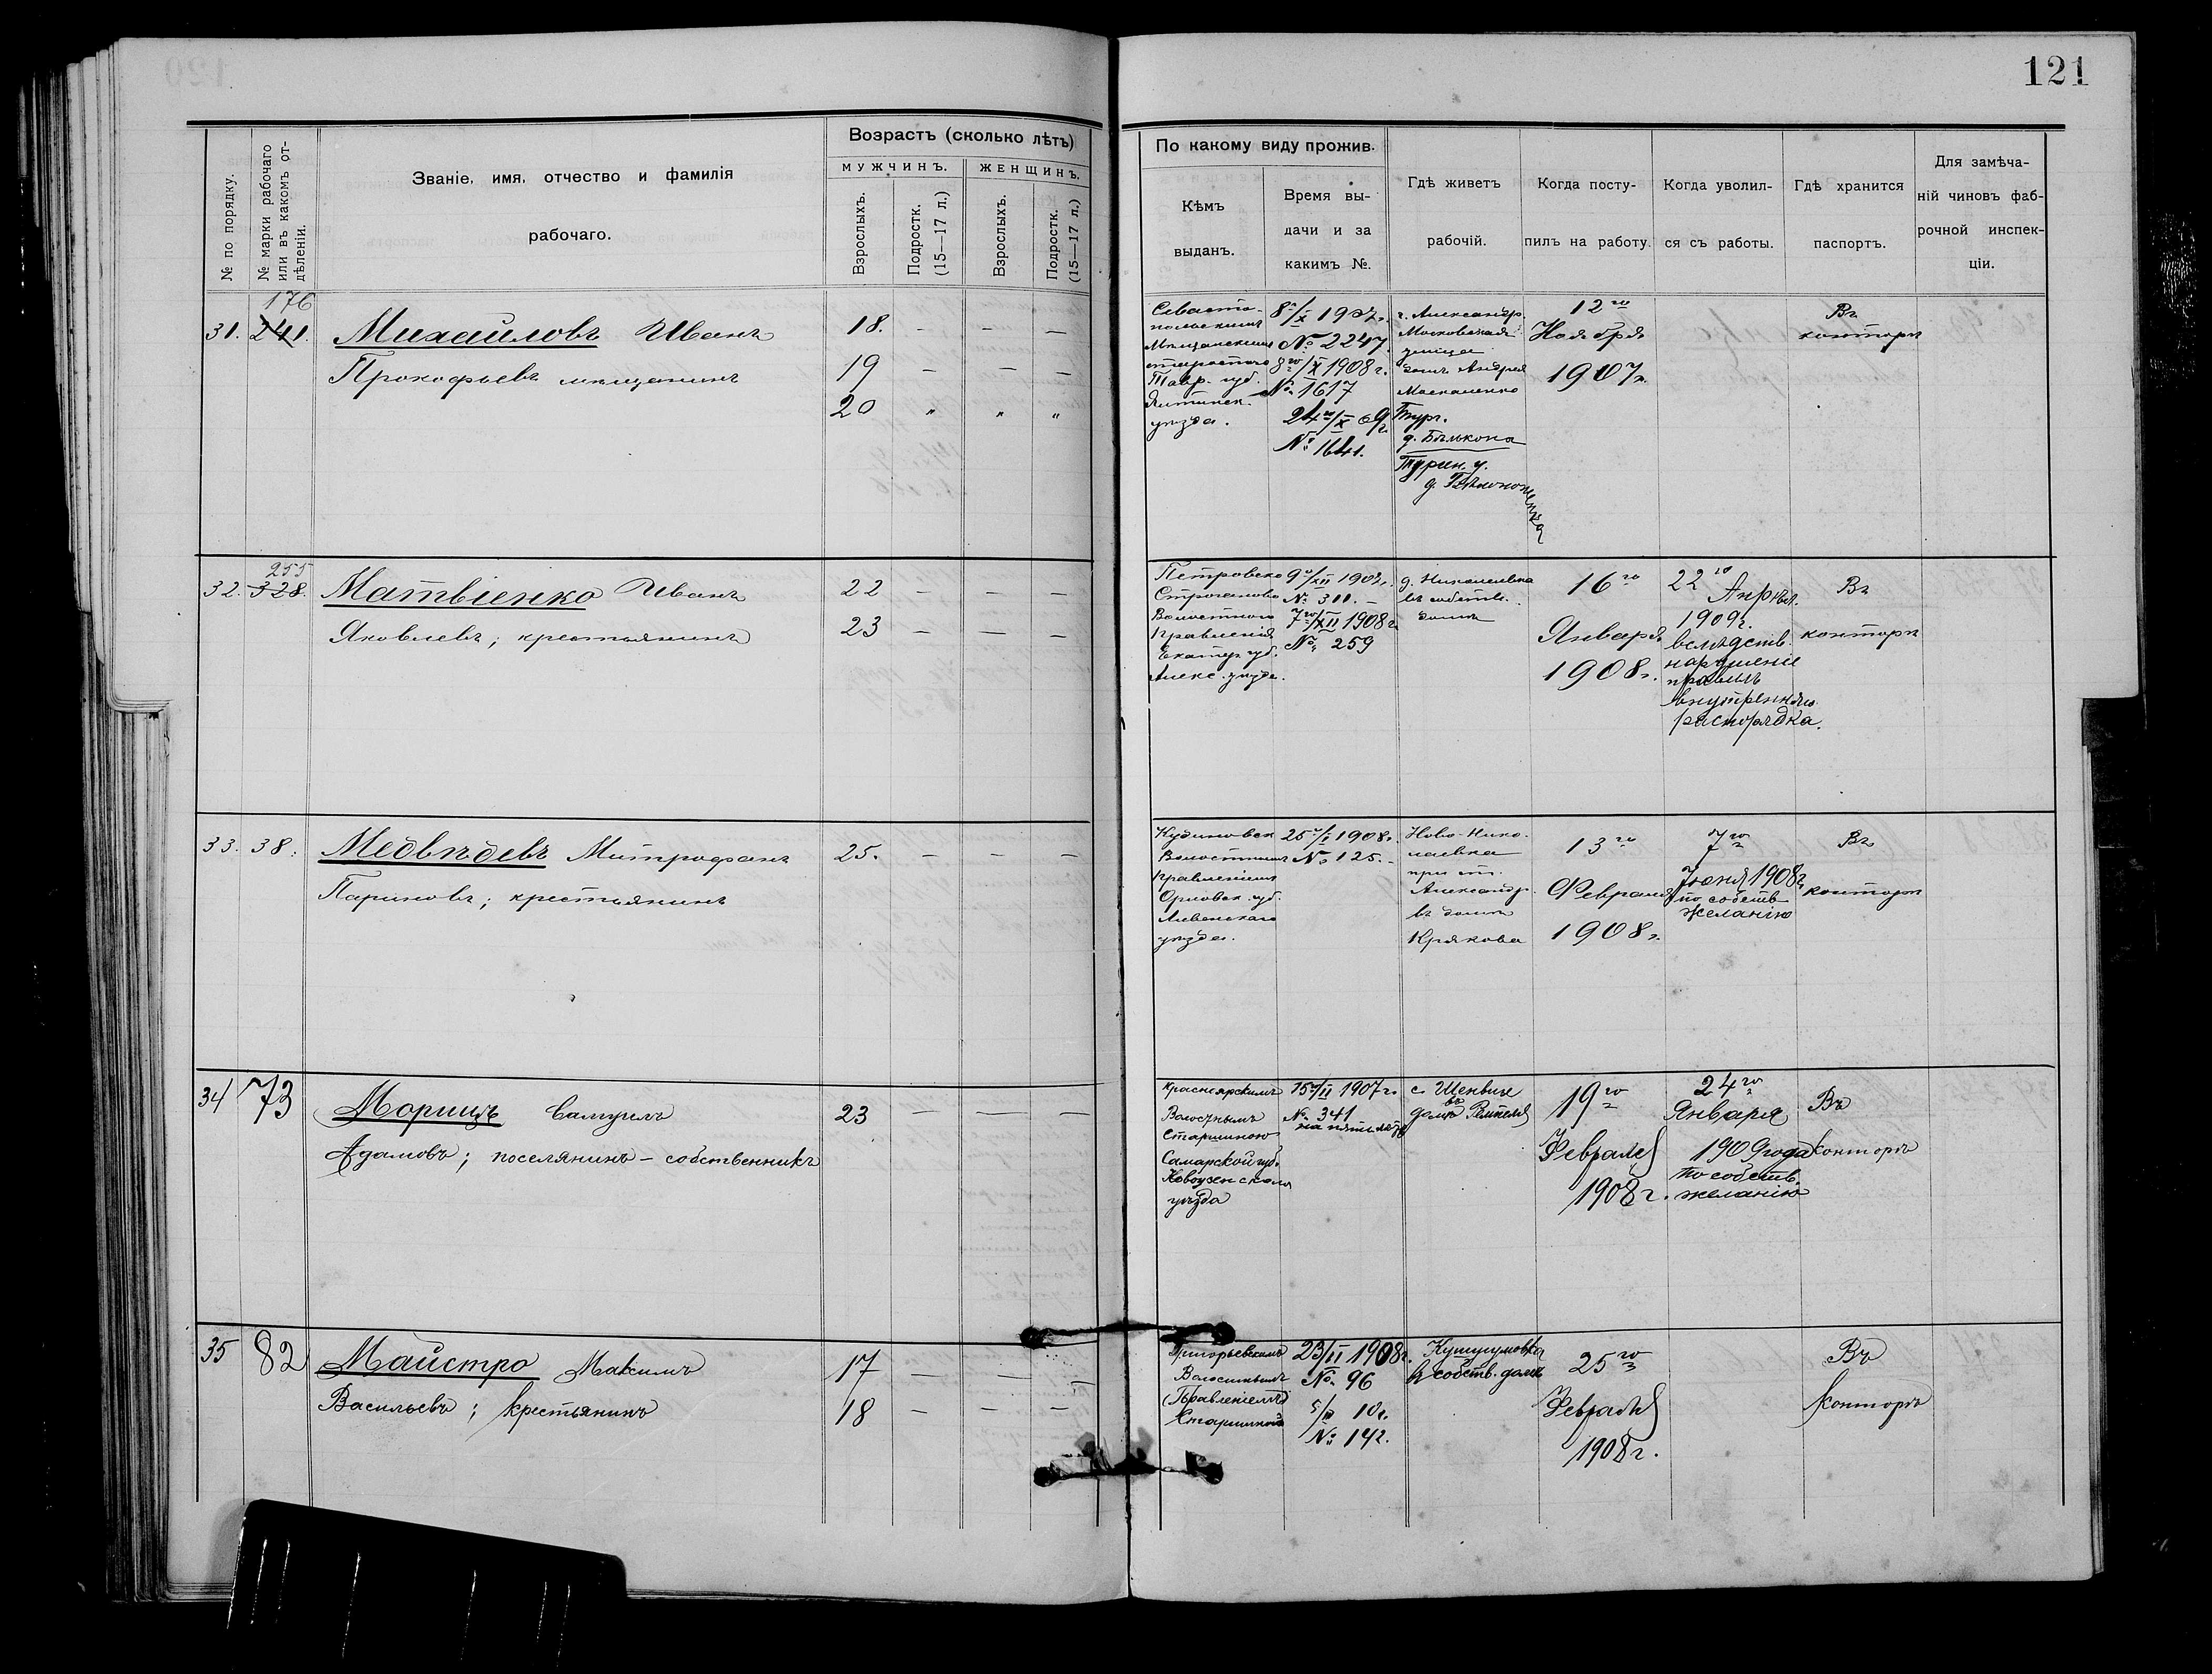 121
№ по порядку.
№ марки рабочаго
или въ какомъ от-
дѣленіи.
Званіе, имя, отчество и фамилія
рабочаго.
Возрастъ (сколько лѣтъ)
МУЖЧИНЪ.
ЖЕНЩИНЪ.
Взрослыхъ.
Подростк.
(15—17 л.)
Взрослыхъ.
Подростк.
(15—17 л.)
По какому виду прожив.
Кѣмъ
выданъ.
Время вы-
дачи и за
какимъ №.
Гдѣ живетъ
рабочій.
Когда посту-
пилъ на работу.
Когда уволил-
ся съ работы.
Гдѣ хранится
паспортъ.
Для замѣча-
ній чиновъ фаб-
рочной инспек-
ціи.
176
31. 241. Михайловъ Иванъ
Прокофьевъ мѣщанинъ
18. — — —
19 — — —
20 " " "
Севасто-
польскимъ
Мѣщанскимъ
старостою
Тавр. губ.
Ялтинск.
уѣзда.
8/X 1907 г.
№ 2247.
8го/XI 1908 г.
№ 1617
24го/X 09 г.
№ 1641.
г. Александр.
Московская
улица
домъ Андрея
Москаленко
д. Бѣлькона
12го
Ноября
1907 г.
Въ
конторѣ
255
32. 328. Матвіенко Иванъ
Яковлевъ; крестьянинъ
22 — — —
23 — — —
Петровско
Строгоново
Волостного
Правленія
Екатер. губ.
Алекс. уѣзда.
9го/XII 1907 г.
№ 311. —
7го/XII 1908 г.
№ 259
д. Николаевка
въ собств.
домѣ
16го
Января
1908 г.
22го Апрѣл.
1909 г.
вслѣдств.
нарушеніе
правилъ
внутренняго
распорядка.
Въ
конторѣ
33. 38. Медвѣдевъ Митрофанъ
Париновъ; крестьянинъ
25. — — —
Волостнымъ
Правленіемъ
Орловск. губ.
Ливенскаго
уѣзда.
25го/I 1908 г.
№ 125. —
Ново-Нико-
лаевка
при ст.
Александр.
въ домѣ
Крякова
13го
Февраля
1908 г.
7го
Іюня 1908 г.
по собств.
желанію
Въ
конторѣ
34 73 Морицъ Самуилъ
Адамовъ; поселянинъ — собственникъ
23 — — —
Красноярскимъ
Волостнымъ
Старшиною
Самарской губ.
Новоузенскаго
уѣзда
15го/II 1907 г.
№ 341
на пять лѣтъ
с. Шенвизе
въ
домѣ Ремпеля
19го
Февраля
1908 г.
24го
Января
1909 года
по собств.
желанію
Въ
Конторѣ
35 82 Майстро Максимъ
Васильевъ; крестьянинъ
17 — — —
18 — — —
Григорьевскимъ
Волостнымъ
(Правленіемъ)
Старшиной
23/II 1908 г.
№ 96
5/II 10 г.
№ 142.
Кушугумовка
въ собств. домѣ
25го
Февраля
1908 г.
Въ
Конторѣ